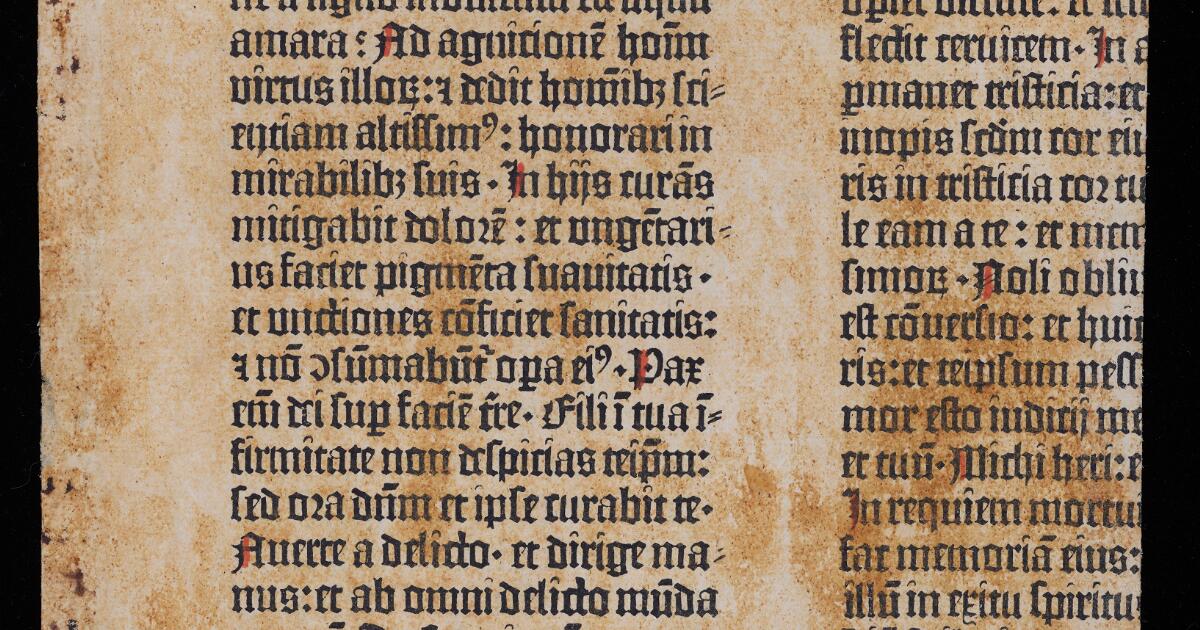 amara : Ad agnitionē hoīm
virtus illoꝝ: ⁊ dedit homībꝫ sci⸗
entiam altissimꝰ : honorari in
mirabilibꝫ suis · In hijs curās
mitigabit dolorē : et ungētari⸗
us faciet pigmēta suauitatis ·
et vnctiones cōficiet sanitatis:
⁊ nō ↄsūmabūt᷑ oꝑa eiꝰ · Pax
em̄ dei suꝑ faciē t̄re · Fili ī tua ī⸗
firmitate non despicias teip̄m:
sed ora dn̄m et ipse curabit te·
Auerte a delicto · et dirige ma⸗
nus: et ab omni delicto mūda
flectit ceruicem · In
ꝑmanet tristicia: et
inopis scd̄m cor
ris in tristicia cor
le eam a te : et
simoꝝ · Noli
est cōuersio: et
ris: et teipsum
mor esto iudicij
et tuū · Michi heri:
In requiem
fac memoriā eius:
illū in exitu